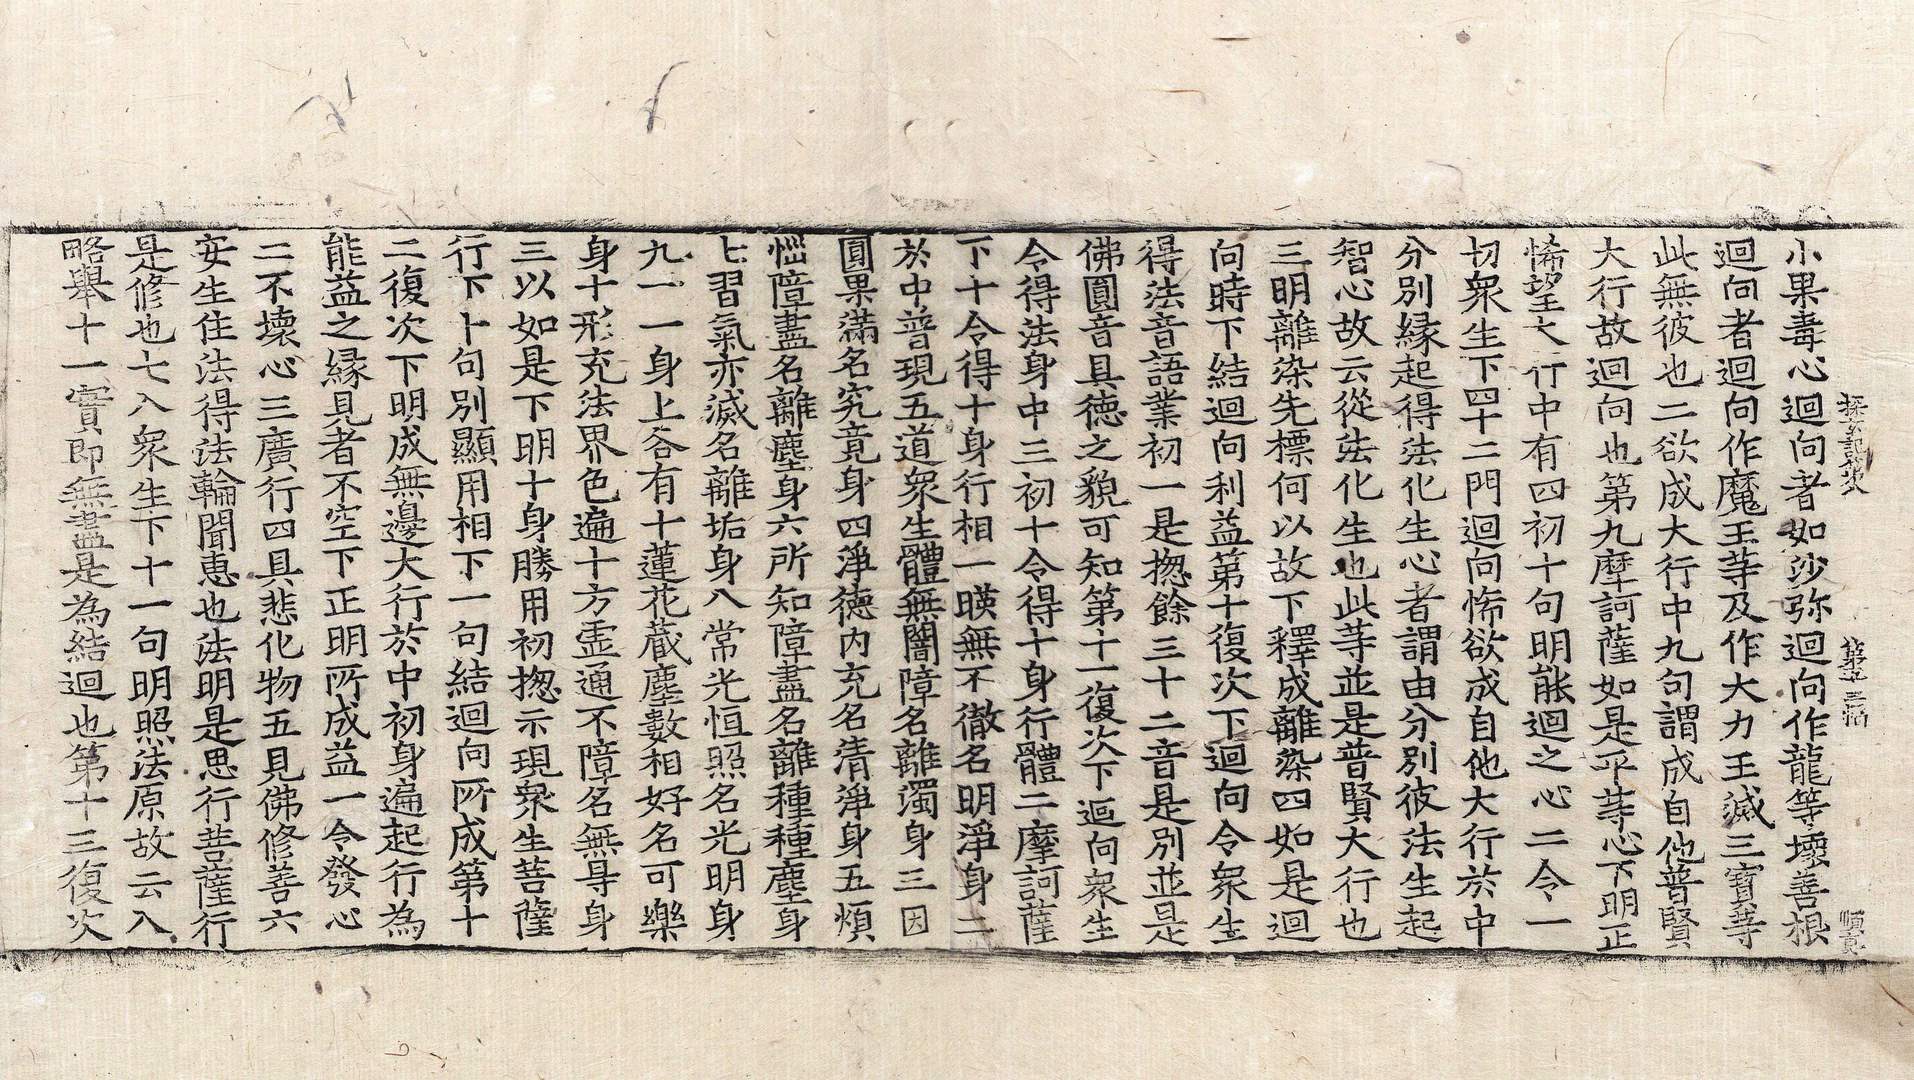 探玄記第八 第十三幅 順貞
小果專心迴向者如沙弥迴向作龍等壞善根
迴向者迴向作魔王等及作大力王滅三寶等
此無彼也二欲成大行中九句謂成自他普賢
大行故迴向也第九摩訶薩如是平等心下明正
悕望大行中有四初十句明能迴之心二令一
切衆生下四十二門迴向悕欲成自他大行於中
分別緣起得法化生心者謂由分別彼法生起
智心故云從法化生也此等並是普賢大行也
三明離染先標何以故下釋成離染四如是迴
向時下結迴向利益第十復次下迴向令衆生
得法音語業初一是揔餘三十二音是別並是
佛圓音具德之貌可知第十一復次下迴向衆生
令得法身中三初十令得十身行體二摩訶薩
下十令得十身行相一暎無不徹名明淨身二
於中普現五道衆生體無闇障名離濁身三因
圓果滿名究竟身四淨德內充名清淨身五煩
惱障盡名離塵身六所知障盡名離種種塵身
七習氣亦滅名離垢身八常光恒照名光明身
九一一身上各有十蓮花藏塵數相好名可樂
身十形充法界色遍十方虛通不障名無㝵身
三以如是下明十身勝用初揔示現衆生菩薩
行下十句別顯用相下一句結迴向所成第十
二復次下明成無邊大行於中初身遍起行為
能益之緣見者不空下正明所成益一令發心
二不壞心三廣行四具悲化物五見佛修善六
安生住法得法輪聞惠也法明是思行菩薩行
是修也七八衆生下十一句明照法原故云入
略舉十一實即無盡是為結迴也第十三復次